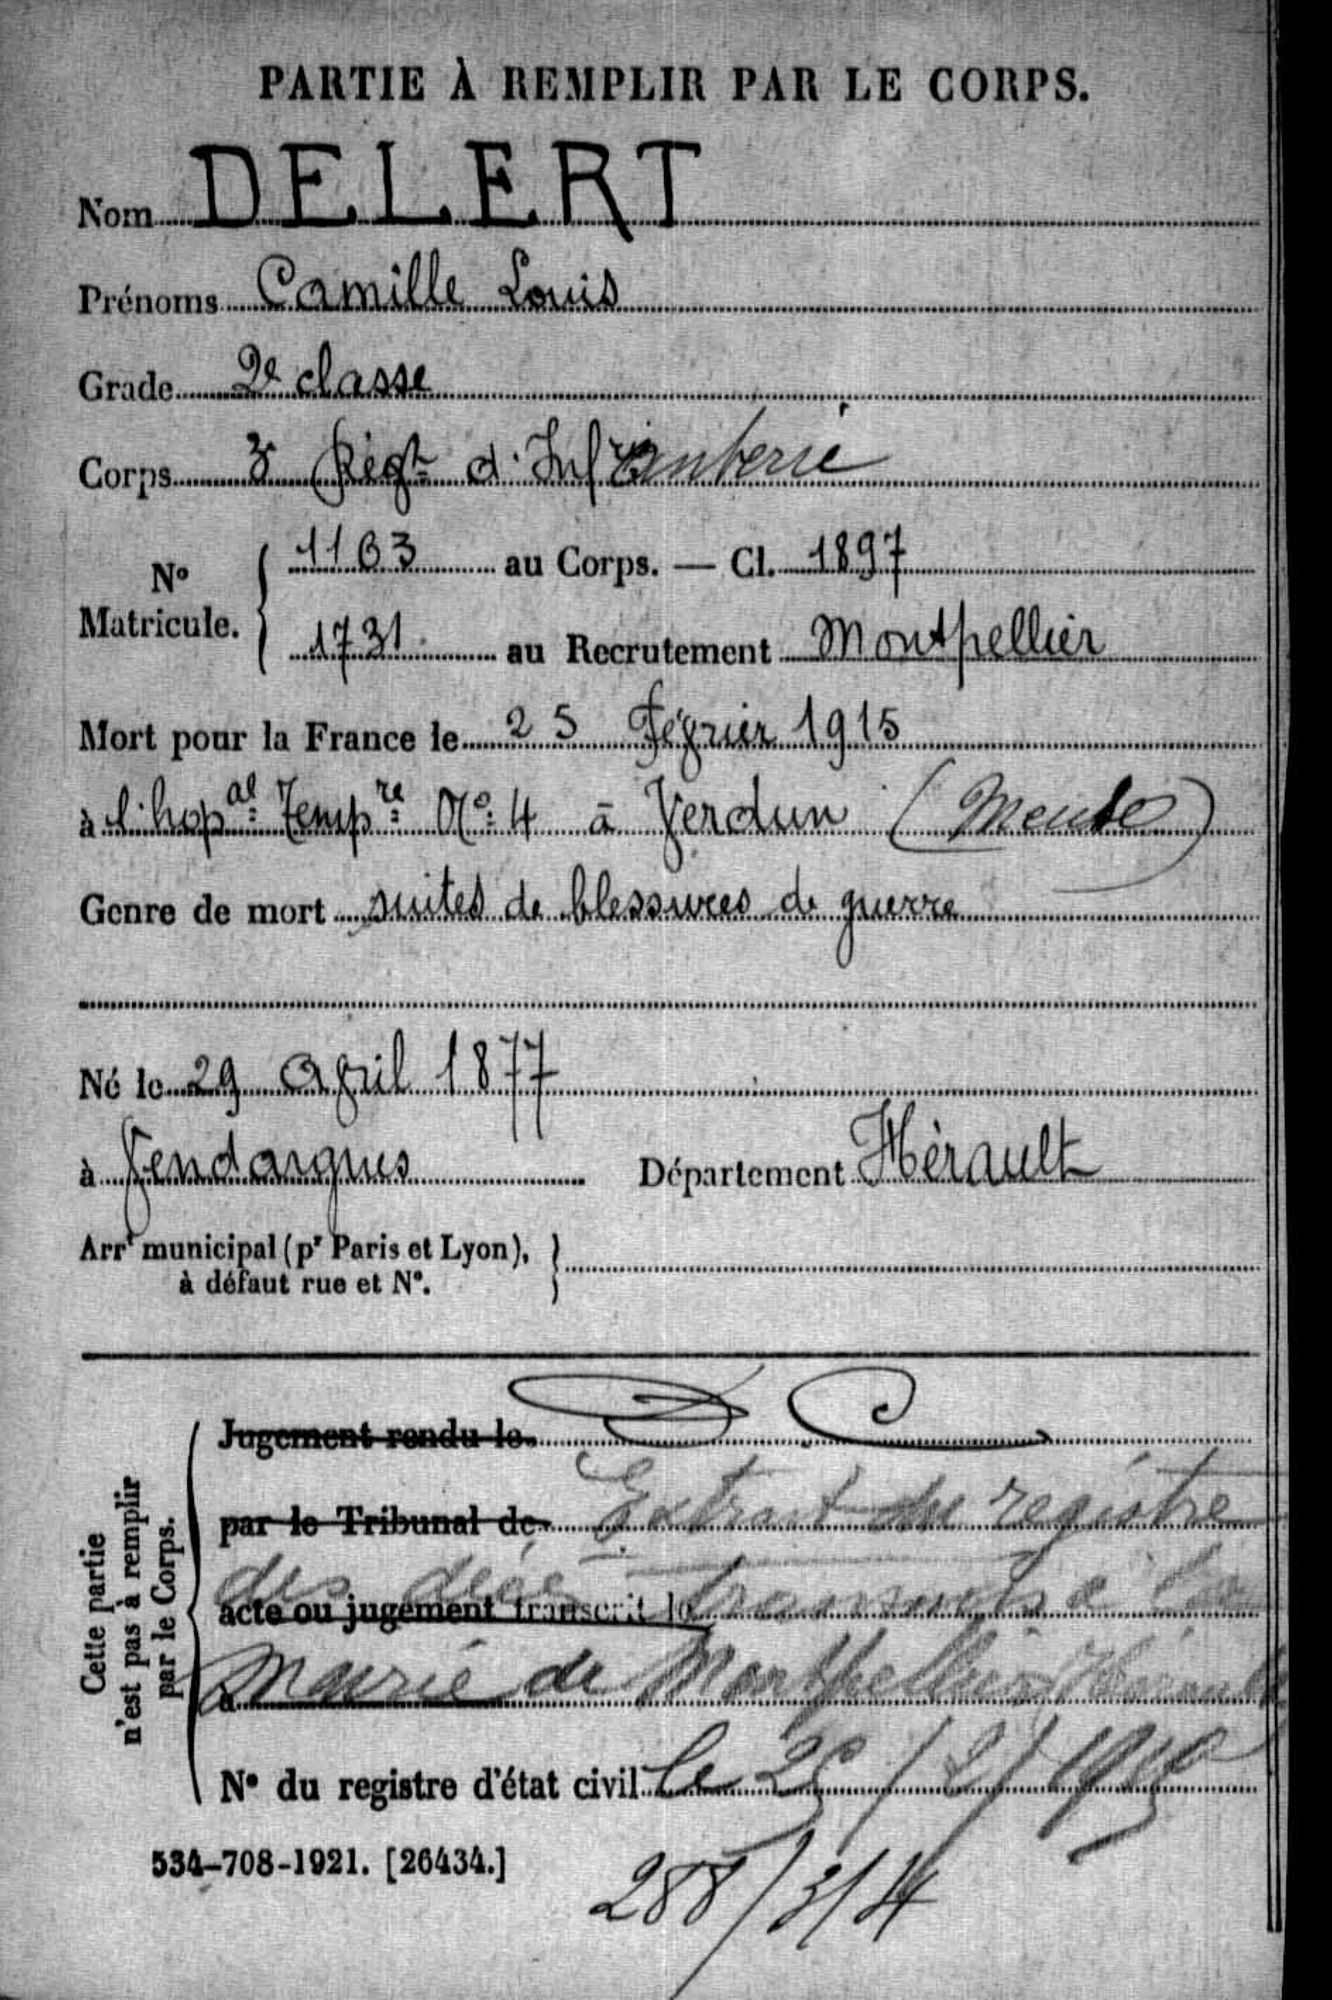 PARTIE À REMPLIR PAR LE CORPS.
Nom DELERT
Prénoms Camille Louis
Grade 2e classe
Corps 3e Régt d'Infanterie
No Matricule. 1163 au Corps. — Cl. 1897
1731 au Recrutement Montpellier
Mort pour la France le 25 Février 1915
à l'hopal Tempre No 4 à Verdun (Meuse)
Genre de mort suites de blessures de guerre
Né le 29 Avril 1877
à Vendargues Département Hérault
Arrt municipal (pr Paris et Lyon),
à défaut rue et No.
Cette partie
n'est pas à remplir
par le Corps.
Jugement rendu le
par le Tribunal de Extrait du registre
des
acte ou jugement transcrit le transmis à la
à Mairie de Montpellier Hérault
No du registre d'état civil le 25/2/
534-708-1921. [26434.]
288/3/14